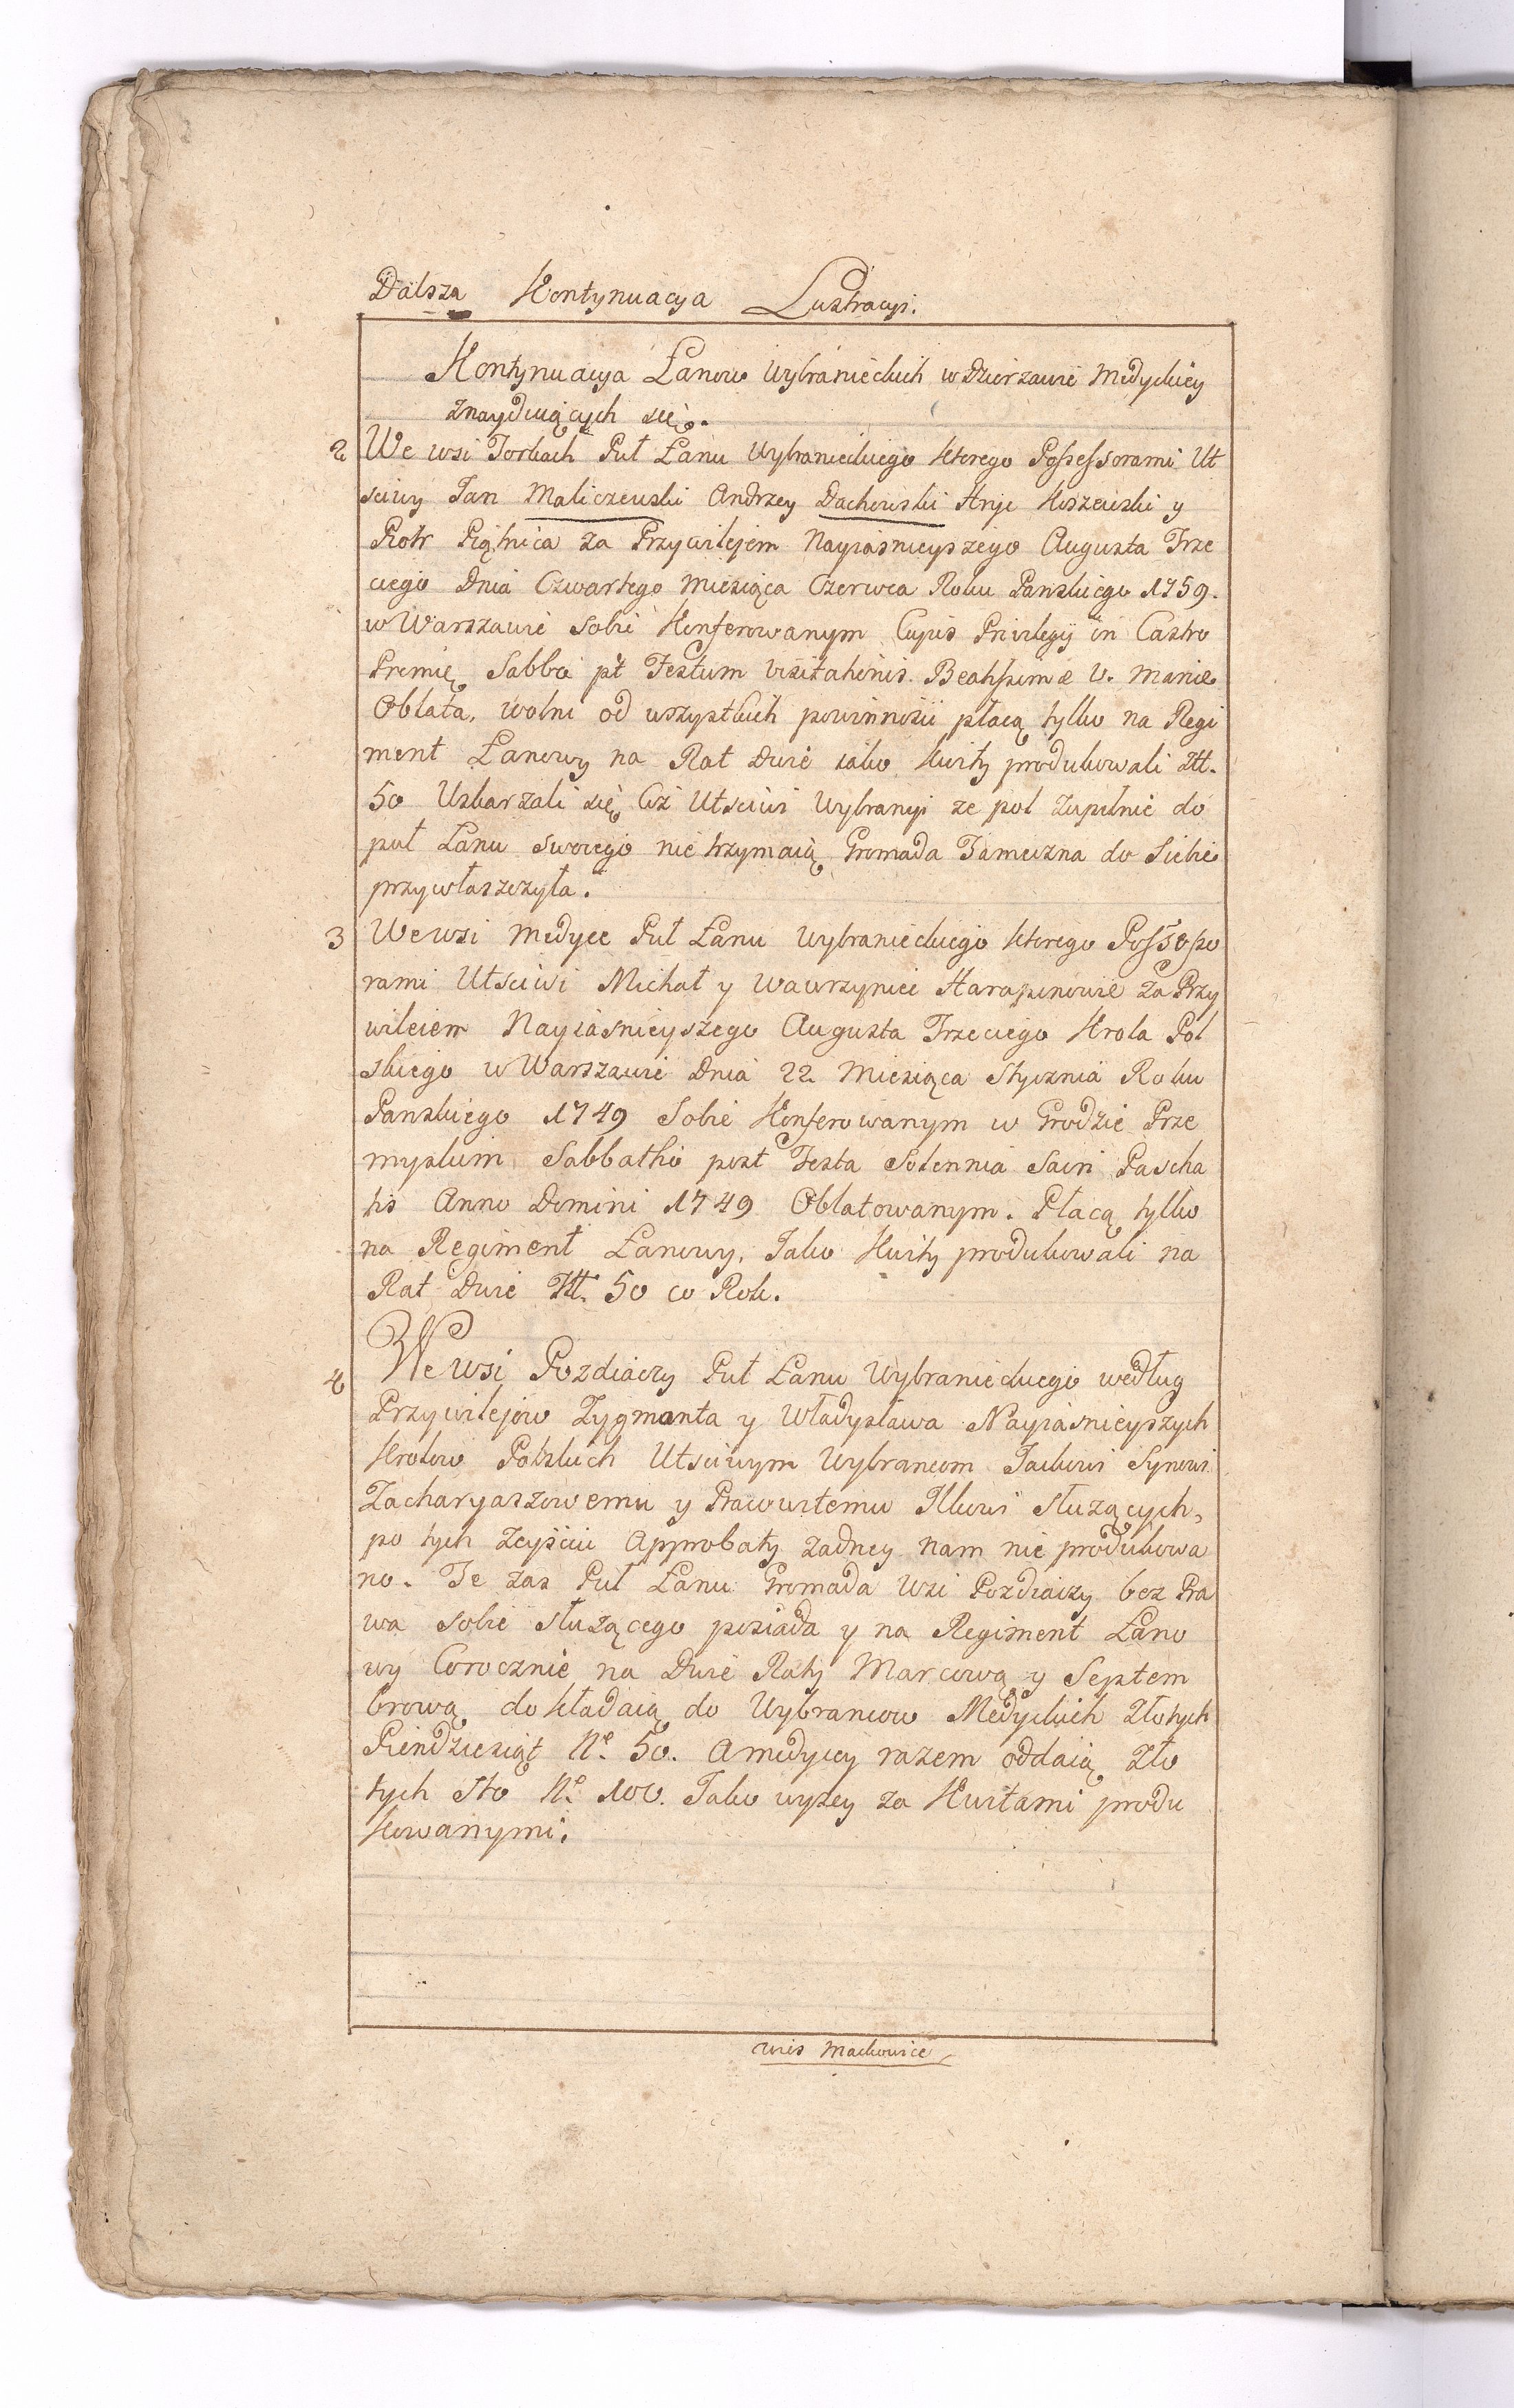 Dalsza Kontynuacya Lustracyi.
Kontynuacya Łanow Wybranieckich w Dzierzawie Medyckiey
znayduiących się.
2 We wsi Torkach Puł Łanu Wybranieckiego ktorego Possessorami Ut
sciwy Jan Maliczewski Andrzey Dachowski Hryc Koszewski y
Piotr Piątnica za Przywilejem Nayiasnieyszego Augusta Trze
ciego Dnia Czwartego Miesiąca Czerwca Roku Panskiego 1759.
w Warszawie Sobie Konferowanym Cujus Privilegij in Castro
Premię Sabbō pt Festum Visitationis Beatissimæ V. Mariæ
Oblata, wolni od wszystkich powinnosci płacą tylko na Regi
ment Łanowy na Rat Dwie iako Kwity produkowali Złł.
50 Uskarzali się Ciż Utsciwi Wybrańcy ze pol Zupełnie do
puł Łanu swoiego nie trzymaią Gromada Tameczna do Siebie
przywłaszczyła.
3 We wsi Medyce Puł Łanu Wybranieckiego ktorego Possesso
rami Utsciwi Michał y Wawrzyniec Harapinowie za Przy
wileiem Nayiasnieyszego Augusta Trzeciego Krola Pol
skiego w Warszawie Dnia 22. Miesiąca Stycznia Roku
Panskiego 1749 Sobie Konferowanym w Grodzie Prze
myslim Sabbatho post Festa Solennia Sacri Pascha
tis Anno Domini 1749 Oblatowanym. Płacą tylko
na Regiment Łanowy, Jako Kwity produkowali na
Rat Dwie Złł. 50 co Rok.
4 We wsi Pozdiaczy Puł Łanu Wybranieckiego według
Przywilejow Zygmanta y Władysława Nayiasnieyszych
Krolow Polskich Utsciwym Wybrancom Jackowi Synowi
Zacharyaszowemu y Prawutemu Ilkowi służących,
po tych Zeysciu Approbaty żadney nam nie produkowa
no. Te zas Puł Łanu Gromada Wsi Pozdiaczy bez Pra
wa sobie służącego posiada y na Regiment Łano
wy Corocznie na Dwie Raty Marcową y Septem
browę dokładaią do Wybrancow Medyckich Złotych
Piendziesiąt N° 50. a Medyccy razem oddaią zło
tych Sto N° 100. Jako wyzey za Kwitami produ
kowanymi.
wies Mackowice